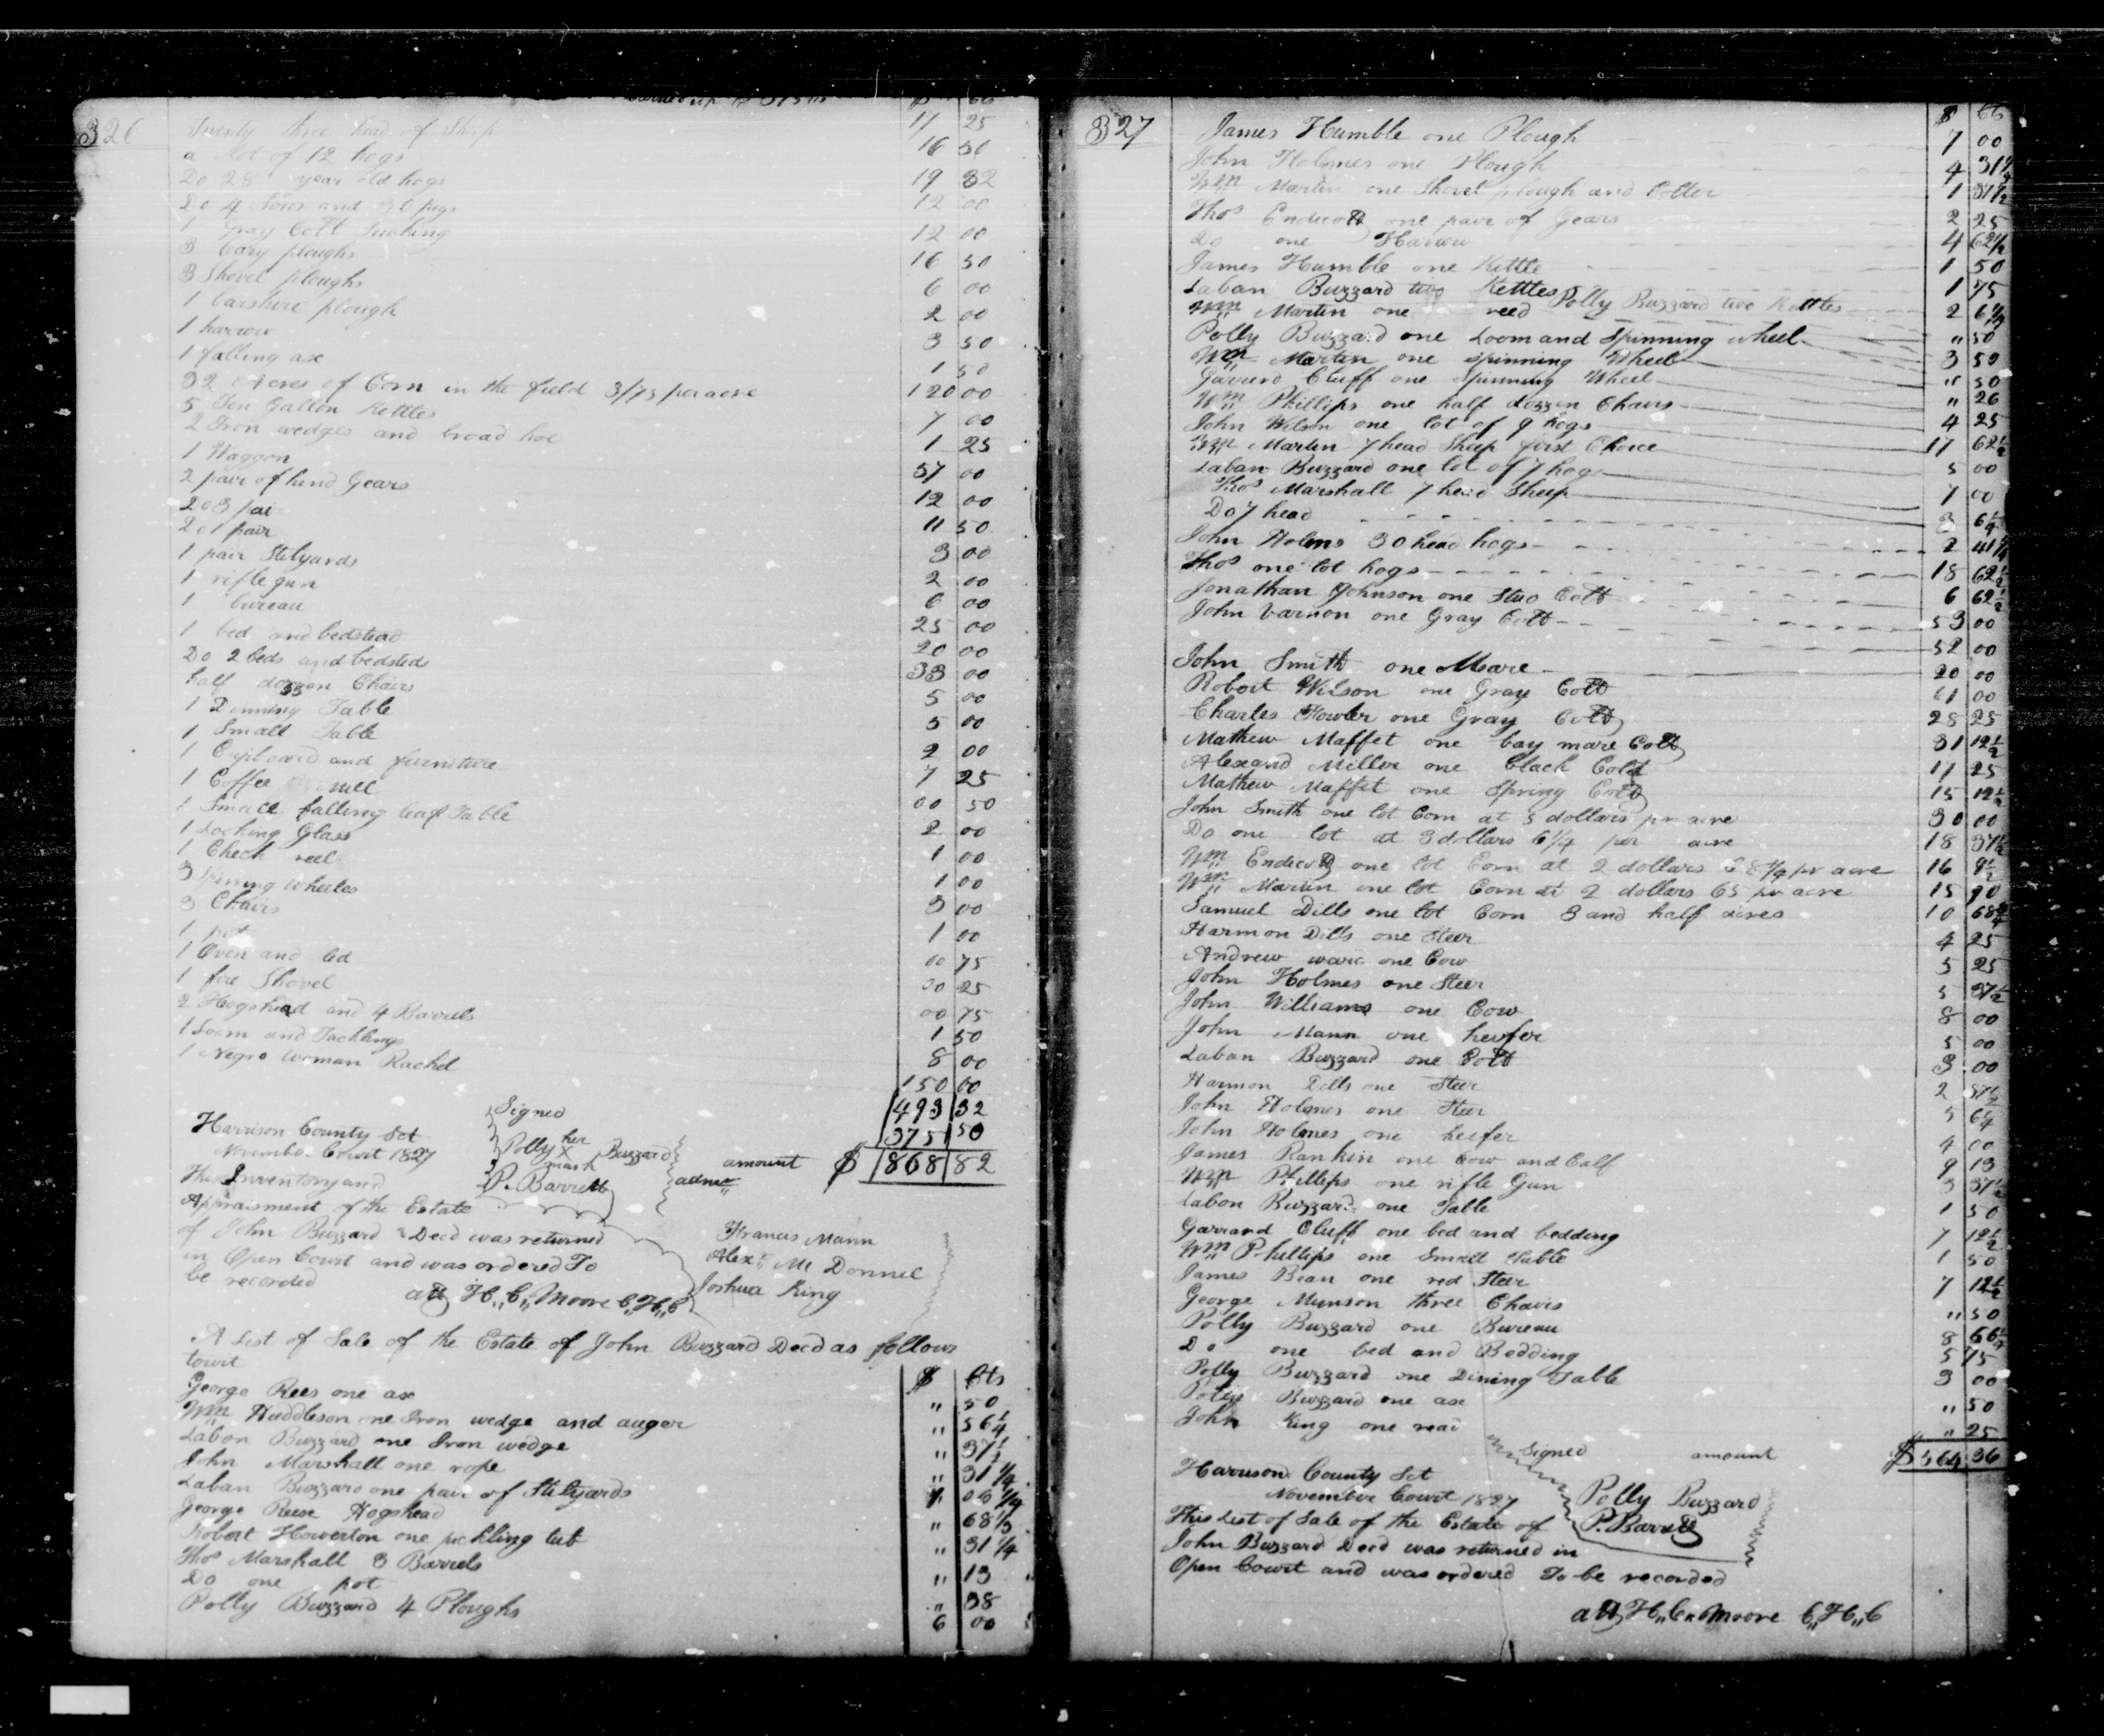 326
$
Twenty three head of Sheep 17 25
a Lot of 12 hogs 16 50
Do 28 year old hogs 19 32
Do 4 Sows and 30 pigs 12 00
1 Gray Colt Sucking 12 00
3 Cary ploughs 16 50
3 Shovel ploughs 6 00
1 barshire plough 2 00
1 harrow 3 50
1 falling ax 1 50
32 Acres of Corn in the field 3/75 per acre 120 00
5 Ten Gallon Kettles 7 00
2 Iron wedges and broad hoe 1 25
1 Waggon 37 00
2 pair of hind Gears 12 00
Do 3 pair 11 50
Do 1 pair 3 00
1 pair Stilyards 2 00
1 rifle gun 6 00
1 bureau 25 00
1 bed and bedstead 20 00
Do 2 beds and bedsteds 33 00
half dozzen Chairs 5 00
1 Dinning Table 5 00
1 Small Table 2 00
1 Cupboard and furniture 7 25
1 Coffee mill 00 50
1 Small falling leaf Table 2 00
1 Looking Glass 1 00
1 Check reel 1 00
3 Spining wheeles 3 00
3 Chairs 1 00
1 pot 00 75
1 Oven and led 00 25
1 fire Shovel 00 75
2 Hogshead and 4 Barrels 1 50
1 Loom and Tackling 8 00
1 Negro Woman Rachel 150 00
493 32
375 50
amount $ 868 82
Signed
Polly her X mark Buzzard
P. Barrett
admrs
Harrison County Sct
November Court 1827
This Inventory and
Appraisment of the Estate
of John Buzzard Decd was returned
in Open Court and was ordered To
be recorded
att H,,C,,Moore C,,H,,C
Francis Mann
Alexr Mc Donnel
Joshua King
A List of Sale of the Estate of John Buzzard Decd as follows
towit $ Cts
George Rees one ax ,, 50
Wm Huddleson one Iron wedge and auger ,, 56 1/4
Labon Buzzard one Iron wedge ,, 37 1/2
John Marshall one rope ,, 31 1/4
Laban Buzzard one pair of Stilyards 1 06 1/4
George Reese Hogshead ,, 68 1/2
Robert Howerton one pickling tub ,, 31 1/4
Thos Marshall 3 Barrels ,, 13
Do one pot ,, 38
Polly Buzzard 4 Ploughs 6 00
327
$ Cts
James Humble one Plough 7 00
John Holmes one Plough 4 31 1/4
Wm Martin one Shovel plough and Colter 1 37 1/2
Thos Endicott one pair of Gears 2 25
Do one Harrow 4 62 1/2
James Humble one Kettle 1 50
Laban Buzzard two Kettles 1 75
Polly Buzzard two Kettles 2 6 1/4
Wm Martin one reed ,, 50
Polly Buzzard one Loom and Spinning wheel 3 50
Wm Martin one spinning Wheel ,, 50
Garrerd Cluff one Spinning Wheel ,, 26
Wm Phillips one half dozzen Chairs 4 25
John Wilson one lot of 9 hogs 17 62 1/2
Wm Martin 7 head Sheep first Choice 5 00
Laban Buzzard one lot of 7 hogs 7 00
Thos Marshall 7 head Sheep 3 6 1/4
Do 7 head 2 41 1/4
John Holms 30 head hogs 18 62 1/2
Thos one lot hogs 6 62 1/2
Jonathan Johnson one Stud Colt 53 00
John Varnon one Gray Colt 52 00
John Smith one Mare 20 00
Robert Wilson one Gray Colt 61 00
Charles Fowler one Gray Colt 28 25
Mathew Maffet one bay mare Colt 31 12 1/2
Alexand Miller one black Colt 17 25
Mathew Maffet one Spring Colt 15 12 1/2
John Smith one lot Corn at 3 dollars pr acre 30 00
Do one lot at 3 dollars 6 1/4 per acre 18 37 1/2
Wm Endicott one lot Corn at 2 dollars 68 1/4 pr acre 16 9 1/2
Wm Martin one lot Corn at 2 dollars 65 pr acre 15 90
Samuel Dills one lot Corn 3 and half acres 10 68 3/4
Harmon Dills one Steer 4 25
Andrew ware one Cow 5 25
John Holmes one Steer 5 37 1/2
John Williams one Cow 8 00
John Mann one heifer 5 00
Laban Buzzard one Colt 3 00
Harmon Dills one Steer 2 87 1/2
John Holmes one Steer 5 6 1/4
John Holmes one heifer 4 00
James Rankin one Cow and Calf 9 13
Wm Phillips one rifle Gun 3 37 1/2
Labon Buzzard one Table 1 50
Garrard Cluff one bed and bedding 7 12 1/2
Wm Phillips one Small Table 1 50
James Bean one red Steer 7 12 1/2
George Munson three Chairs ,, 50
Polly Buzzard one Bureau 8 66 1/2
Do one bed and Bedding 5 15
Polly Buzzard one Dining Table 3 00
Polly Buzzard one ax ,, 50
John King one read ,, 25
Signed amount $564 36
Harrison County Sct
November Court 1827
Polly Buzzard
P. Barrett
This List of Sale of the Estate of
John Buzzard Decd was returned in
Open Court and was ordered To be recorded
att H,,C,,Moore C,,H,,C